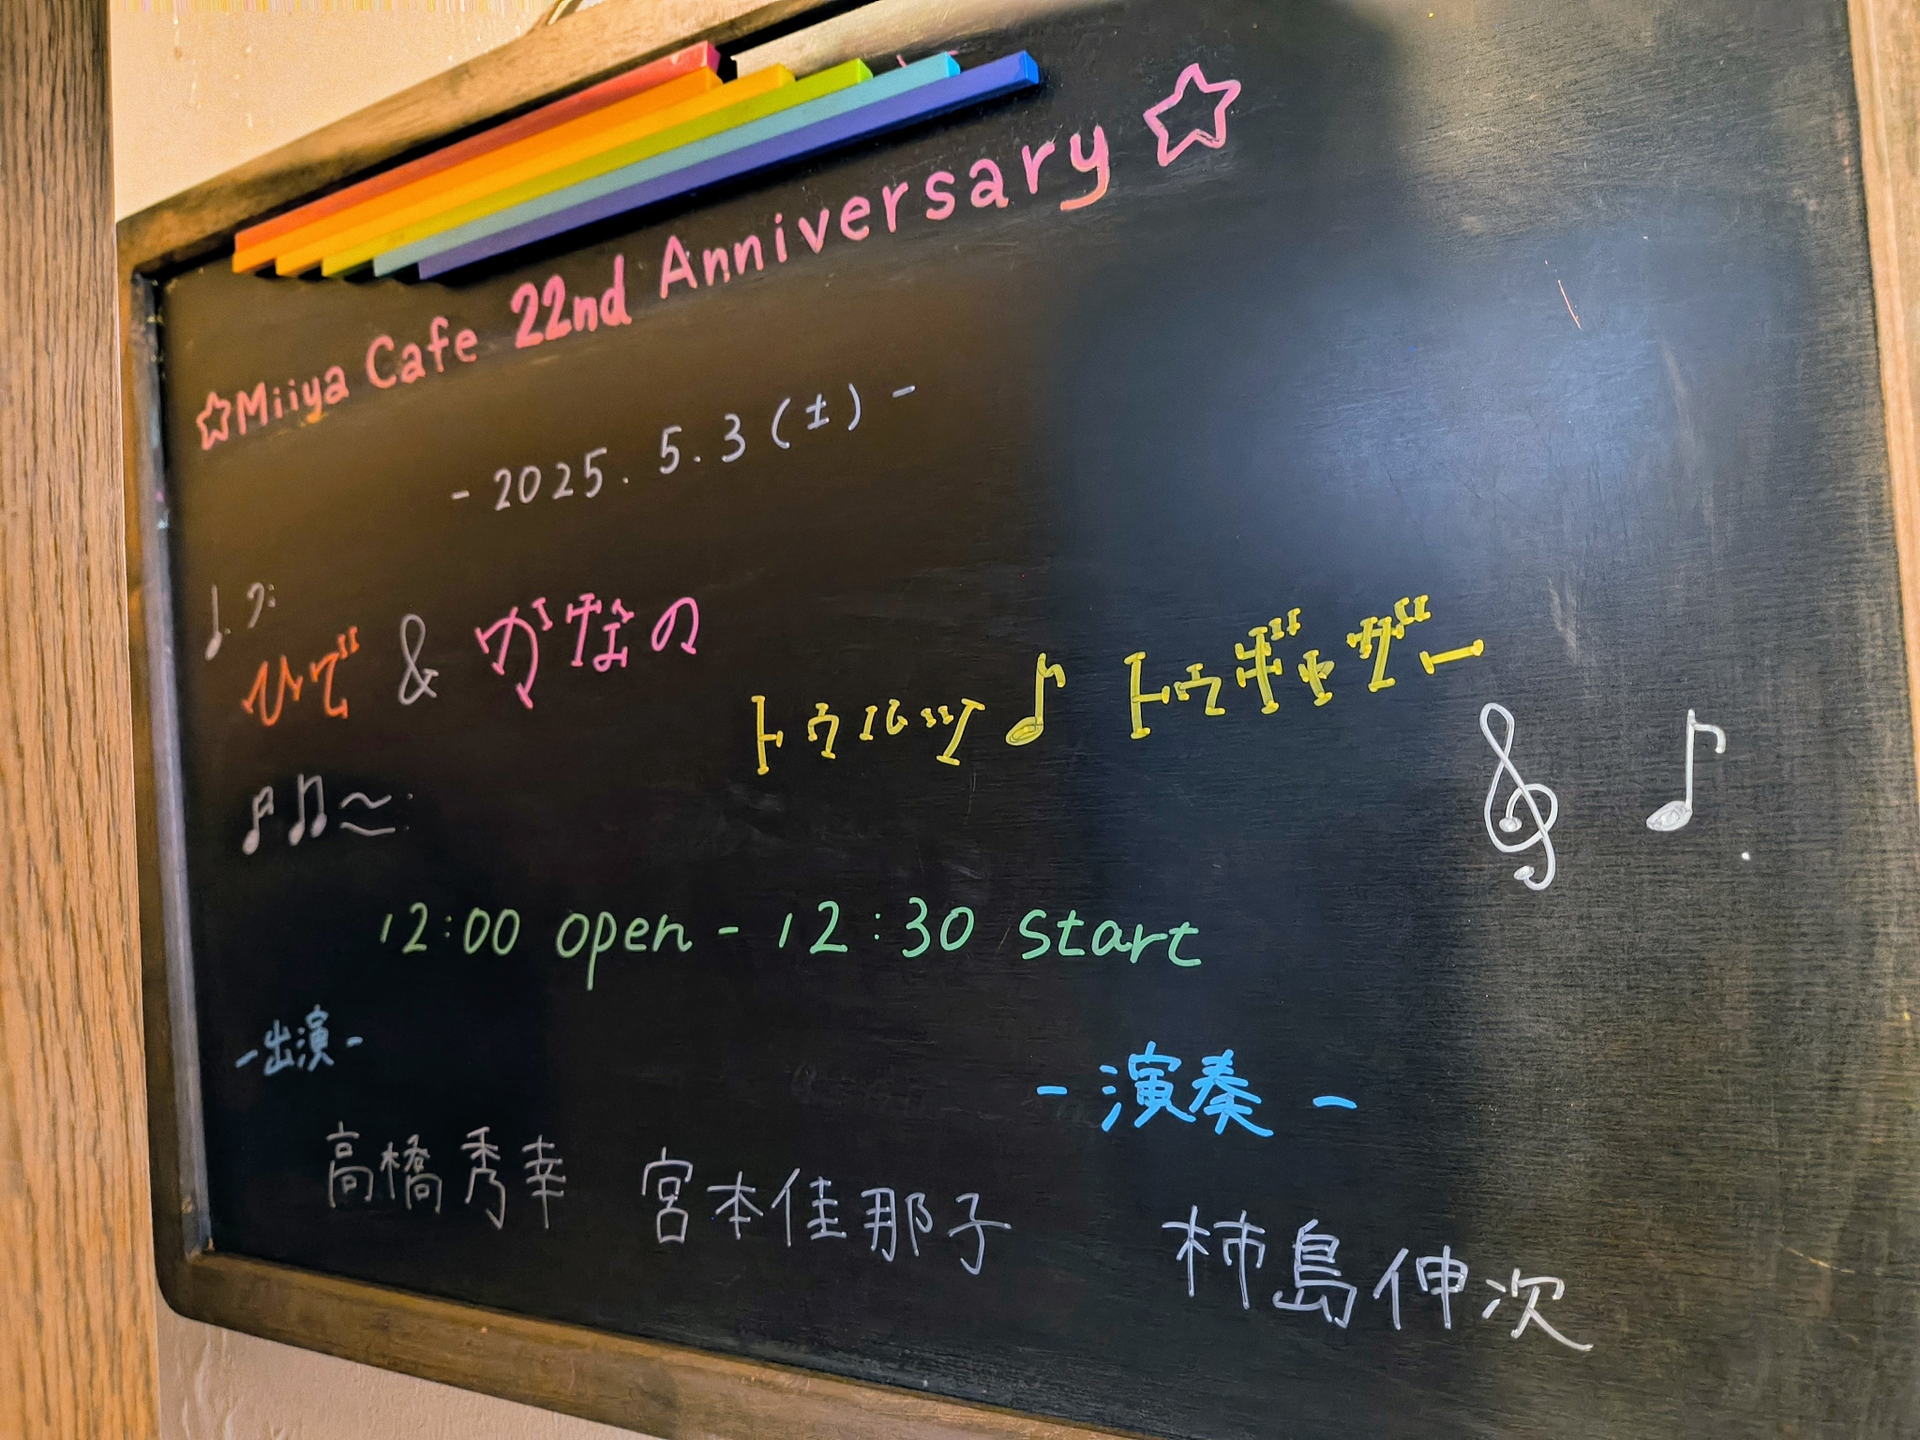 ☆Miiya Cafe 22nd Anniversary☆
- 2025. 5.3 (土) -
ひで & かなの
トゥルッツ♪トゥギャザー
12:00 open - 12:30 start
-出演-
高橋秀幸 宮本佳那子
-演奏-
柿島伸次